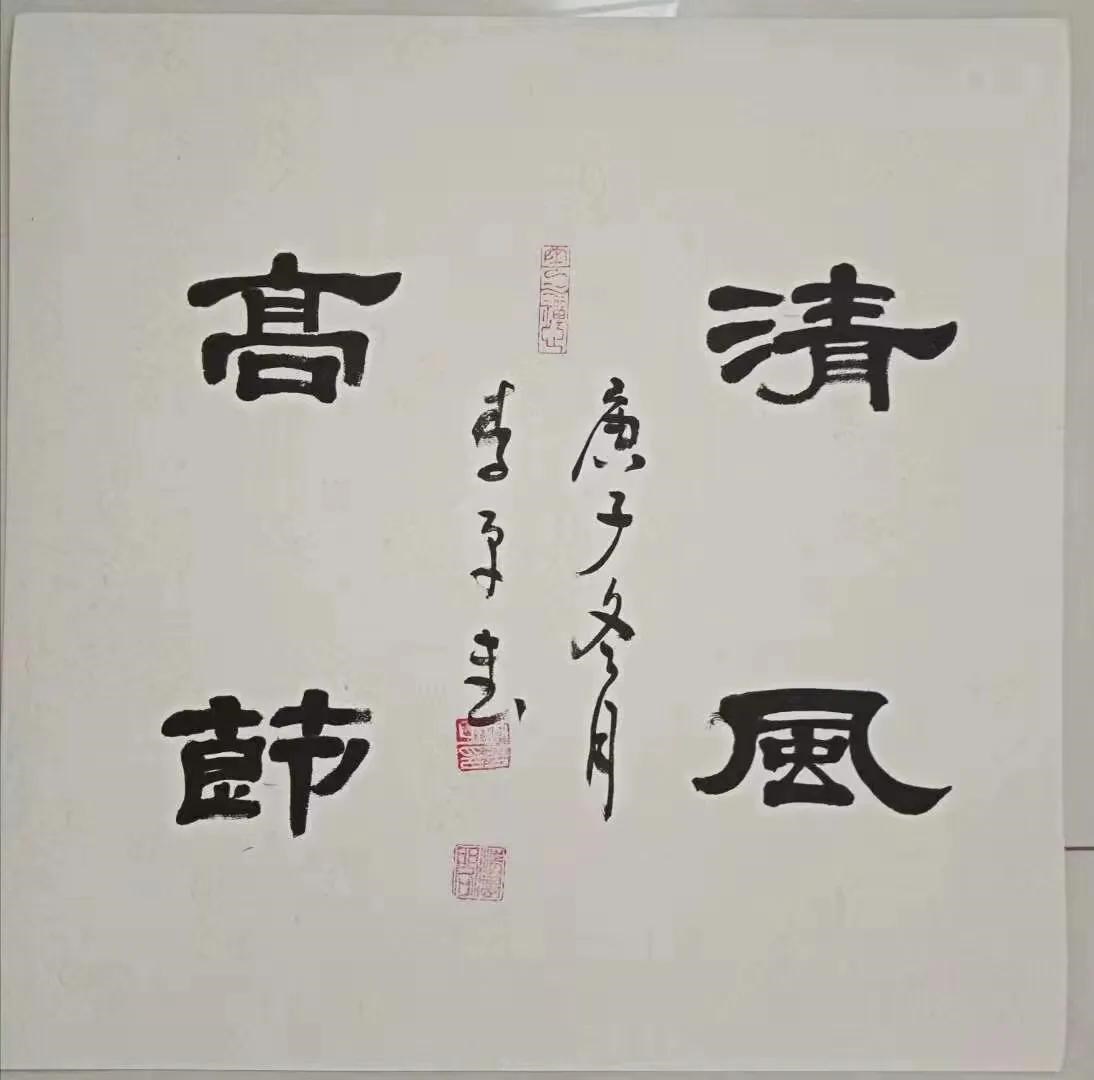 清風
高節
庚子冬月
李平書